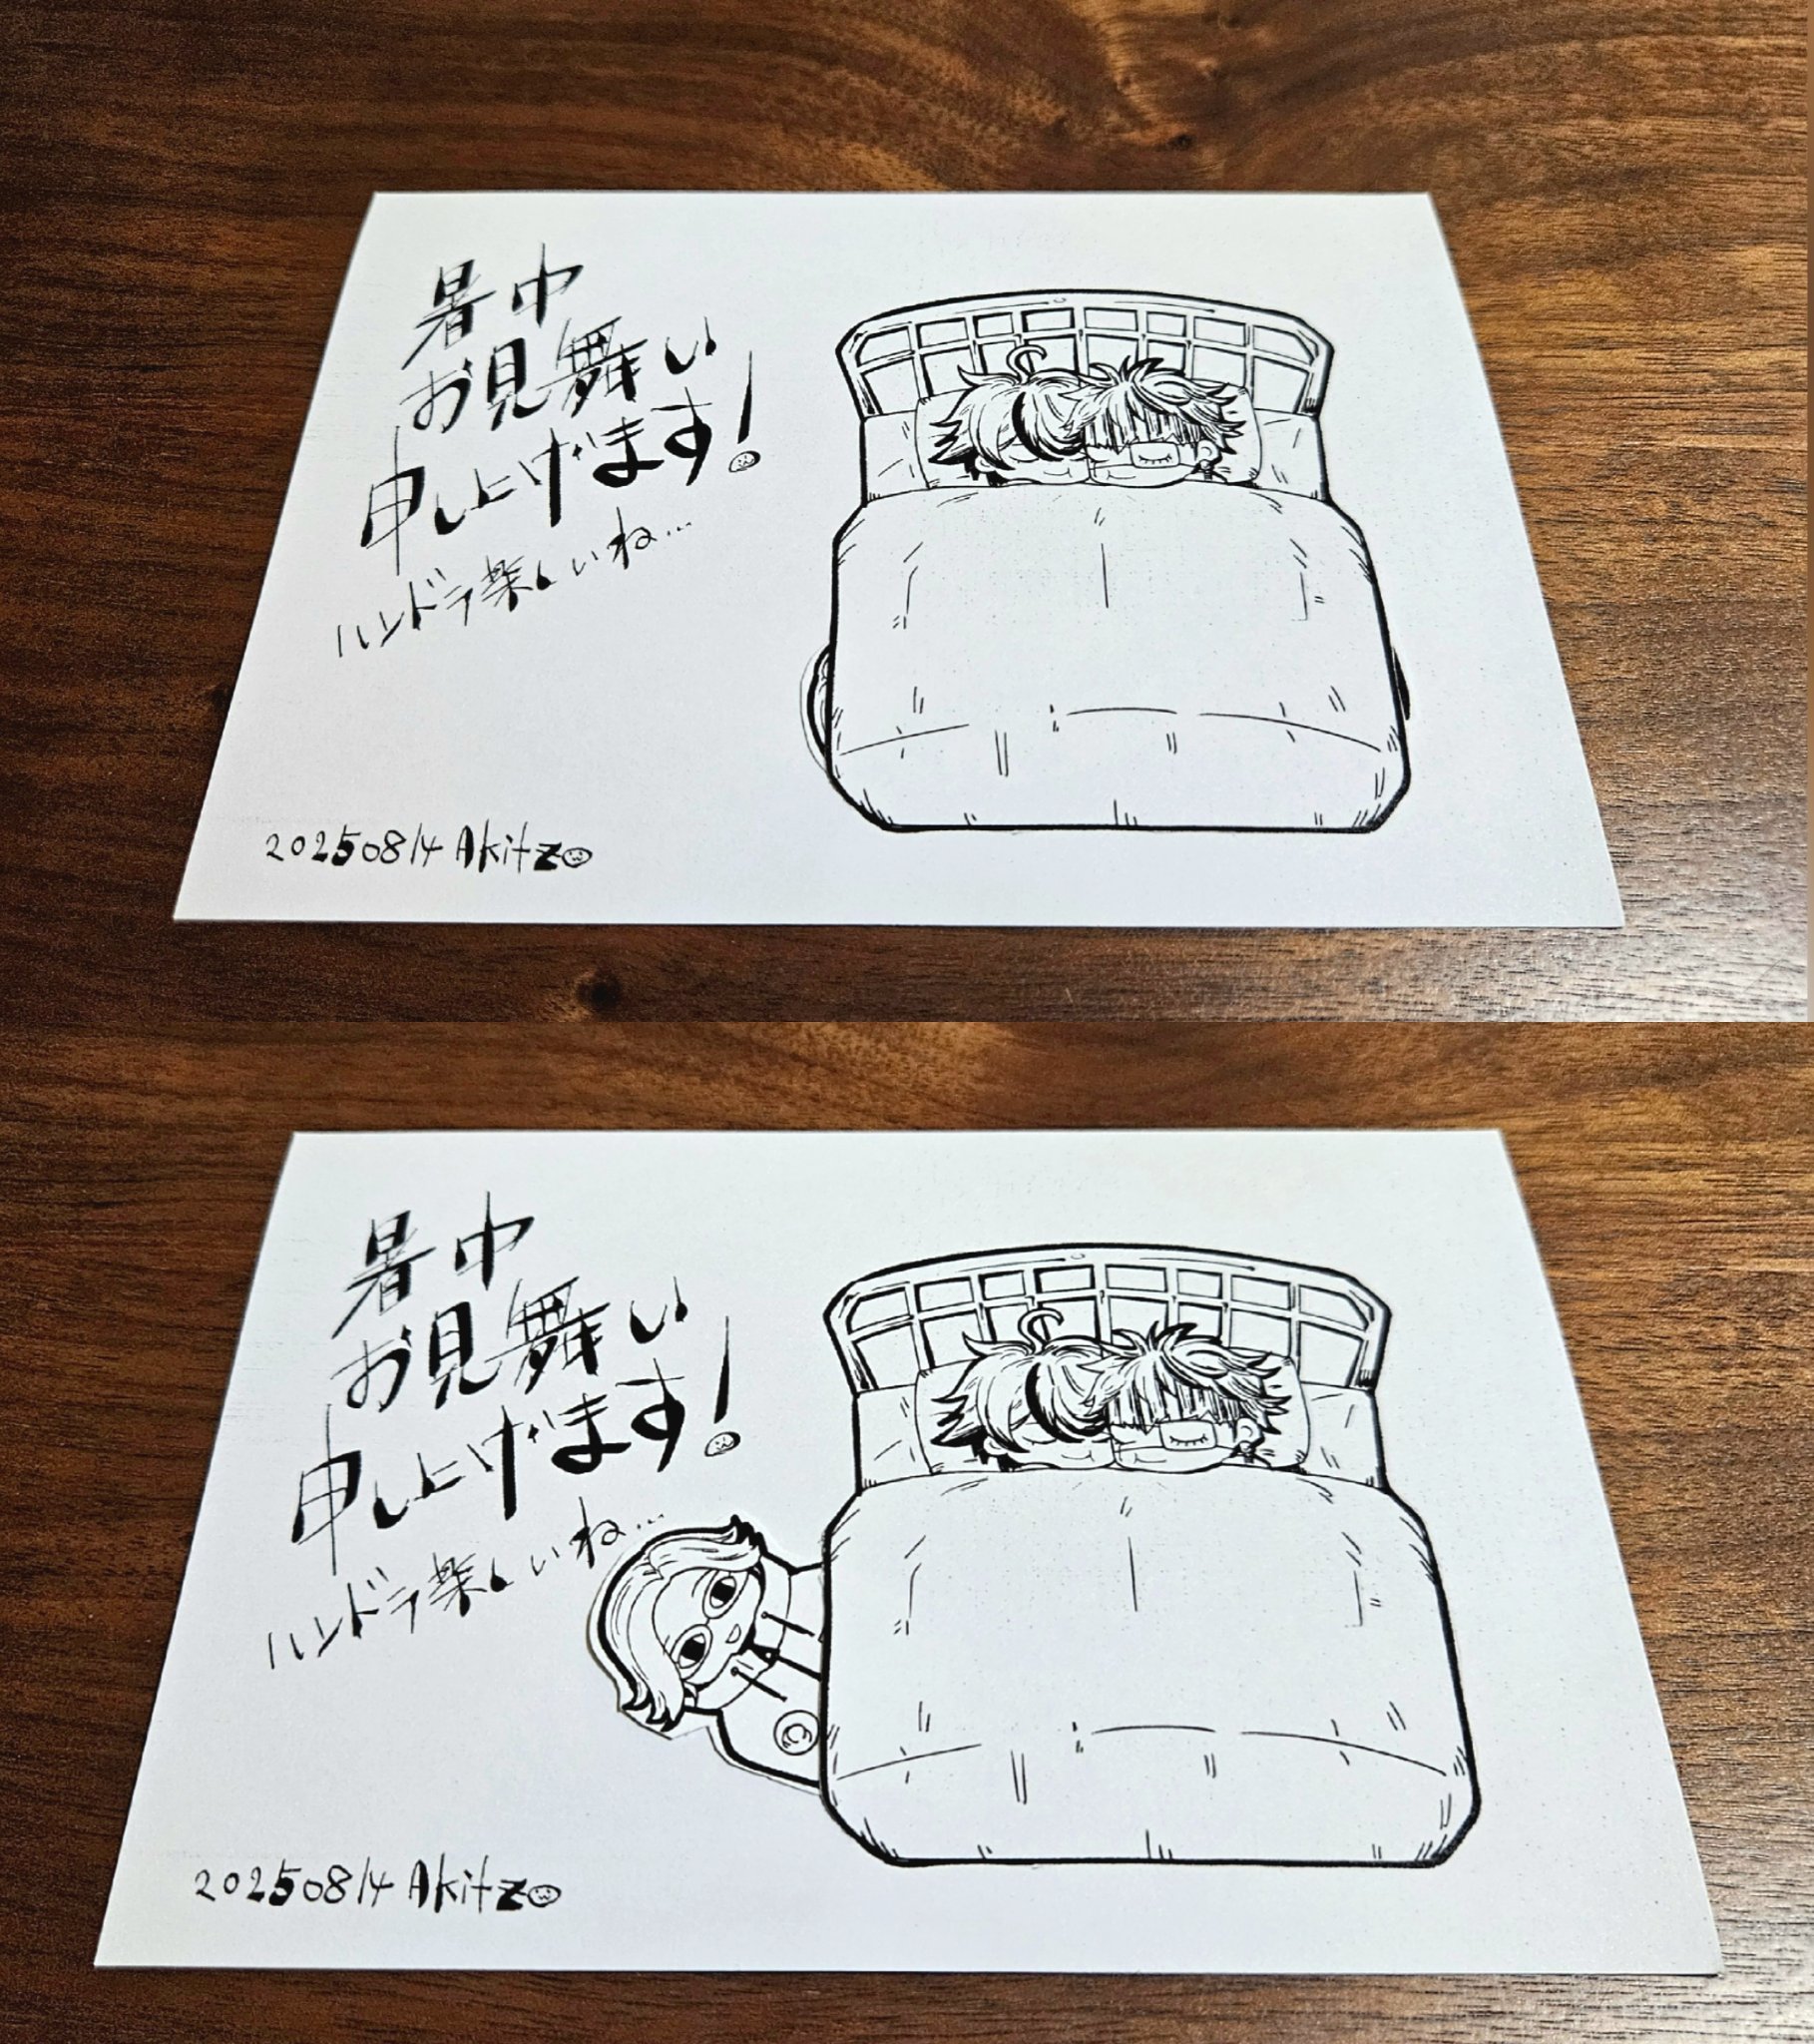 暑中
お見舞い
申し上げます!
ハンドラ楽しいね…
20250814 Akitzo
暑中
お見舞い
申し上げます!
ハンドラ楽しいね…
20250814 Akitzo